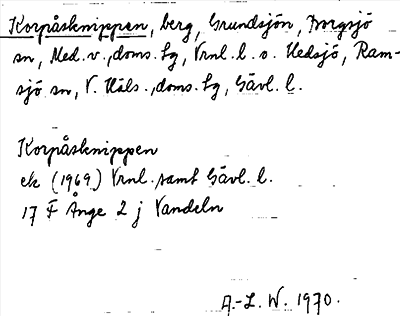 Korpåsknippen, berg, Grundsjön, Borgsjö
sn, Med. v., doms. sg, Vrnl. l. o. Hedsjö, Ram-
sjö sn, V. Häls., doms. sg, Gävl. l.
Korpåsknippen
ek (1969) Vrnl. samt Gävl. l.
17 F Ånge 2 j Vandeln
A.-L. W. 1970.